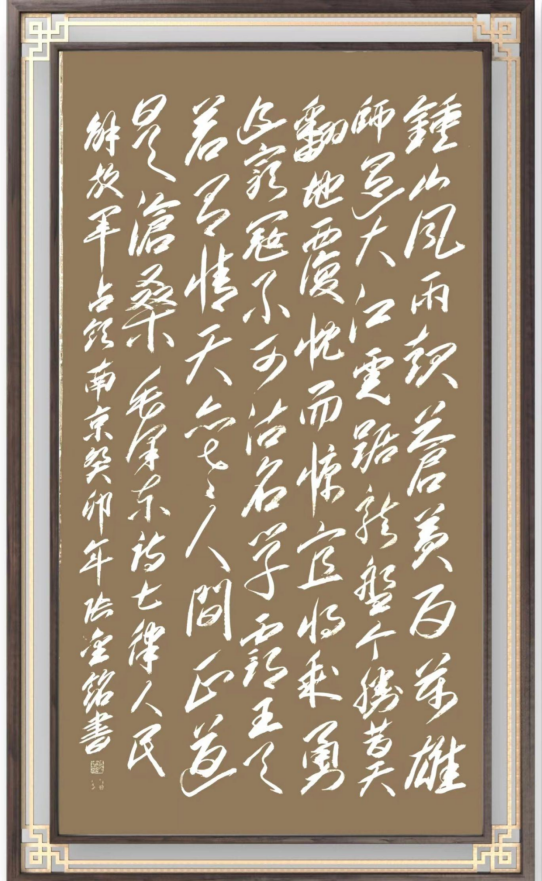 鍾山風雨起蒼黃百萬雄
師過大江虎踞龍盤今勝昔天
翻地覆慨而慷宜將乘勇
追窮寇不可沽名學霸王天
若有情天亦老人間正道
是滄桑 毛澤東詩七律人民
解放軍占領南京癸卯年金銘書